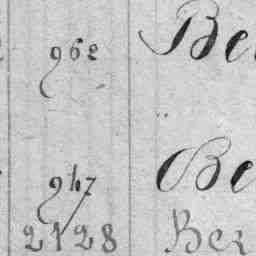 962 Be
947 Be
2128 Ber